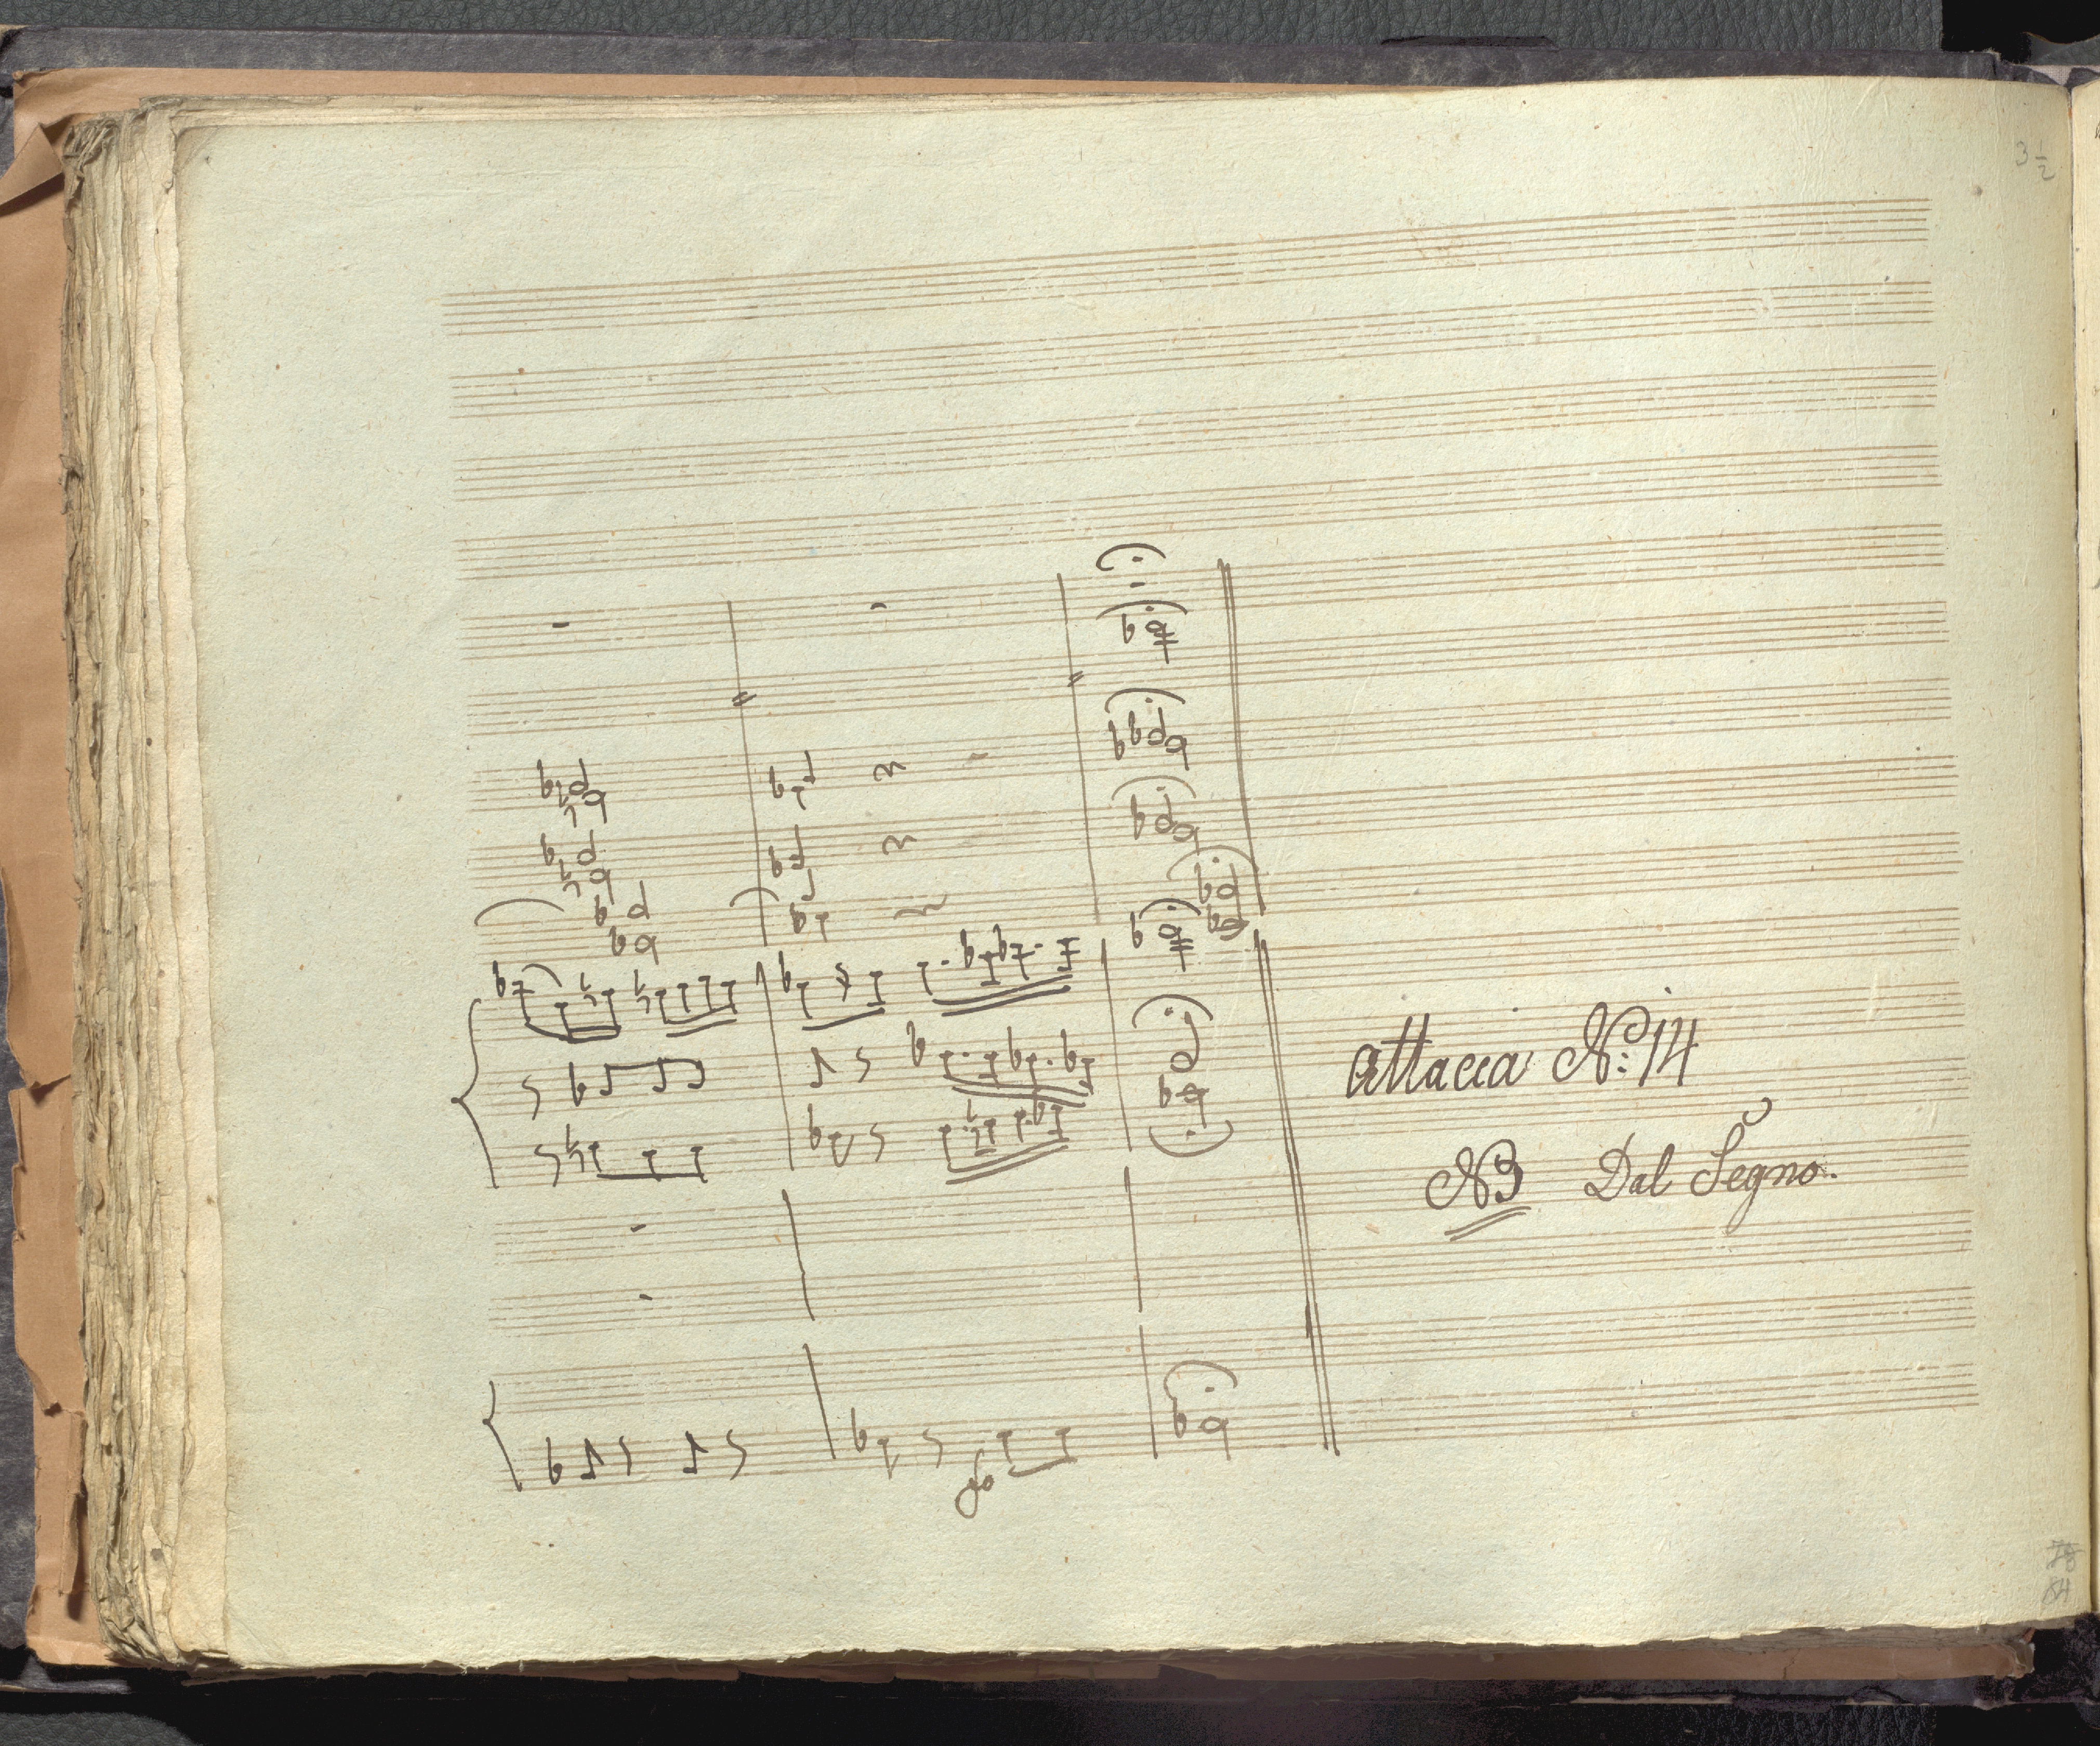 3 1/2
attacca No: 14
NB Dal Segno.
fo
84